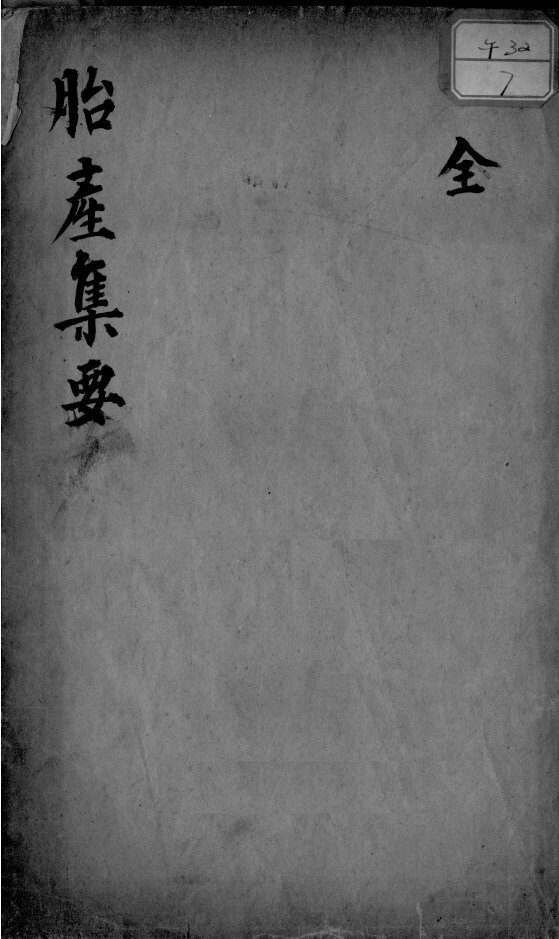 午32
7
全
胎產集要